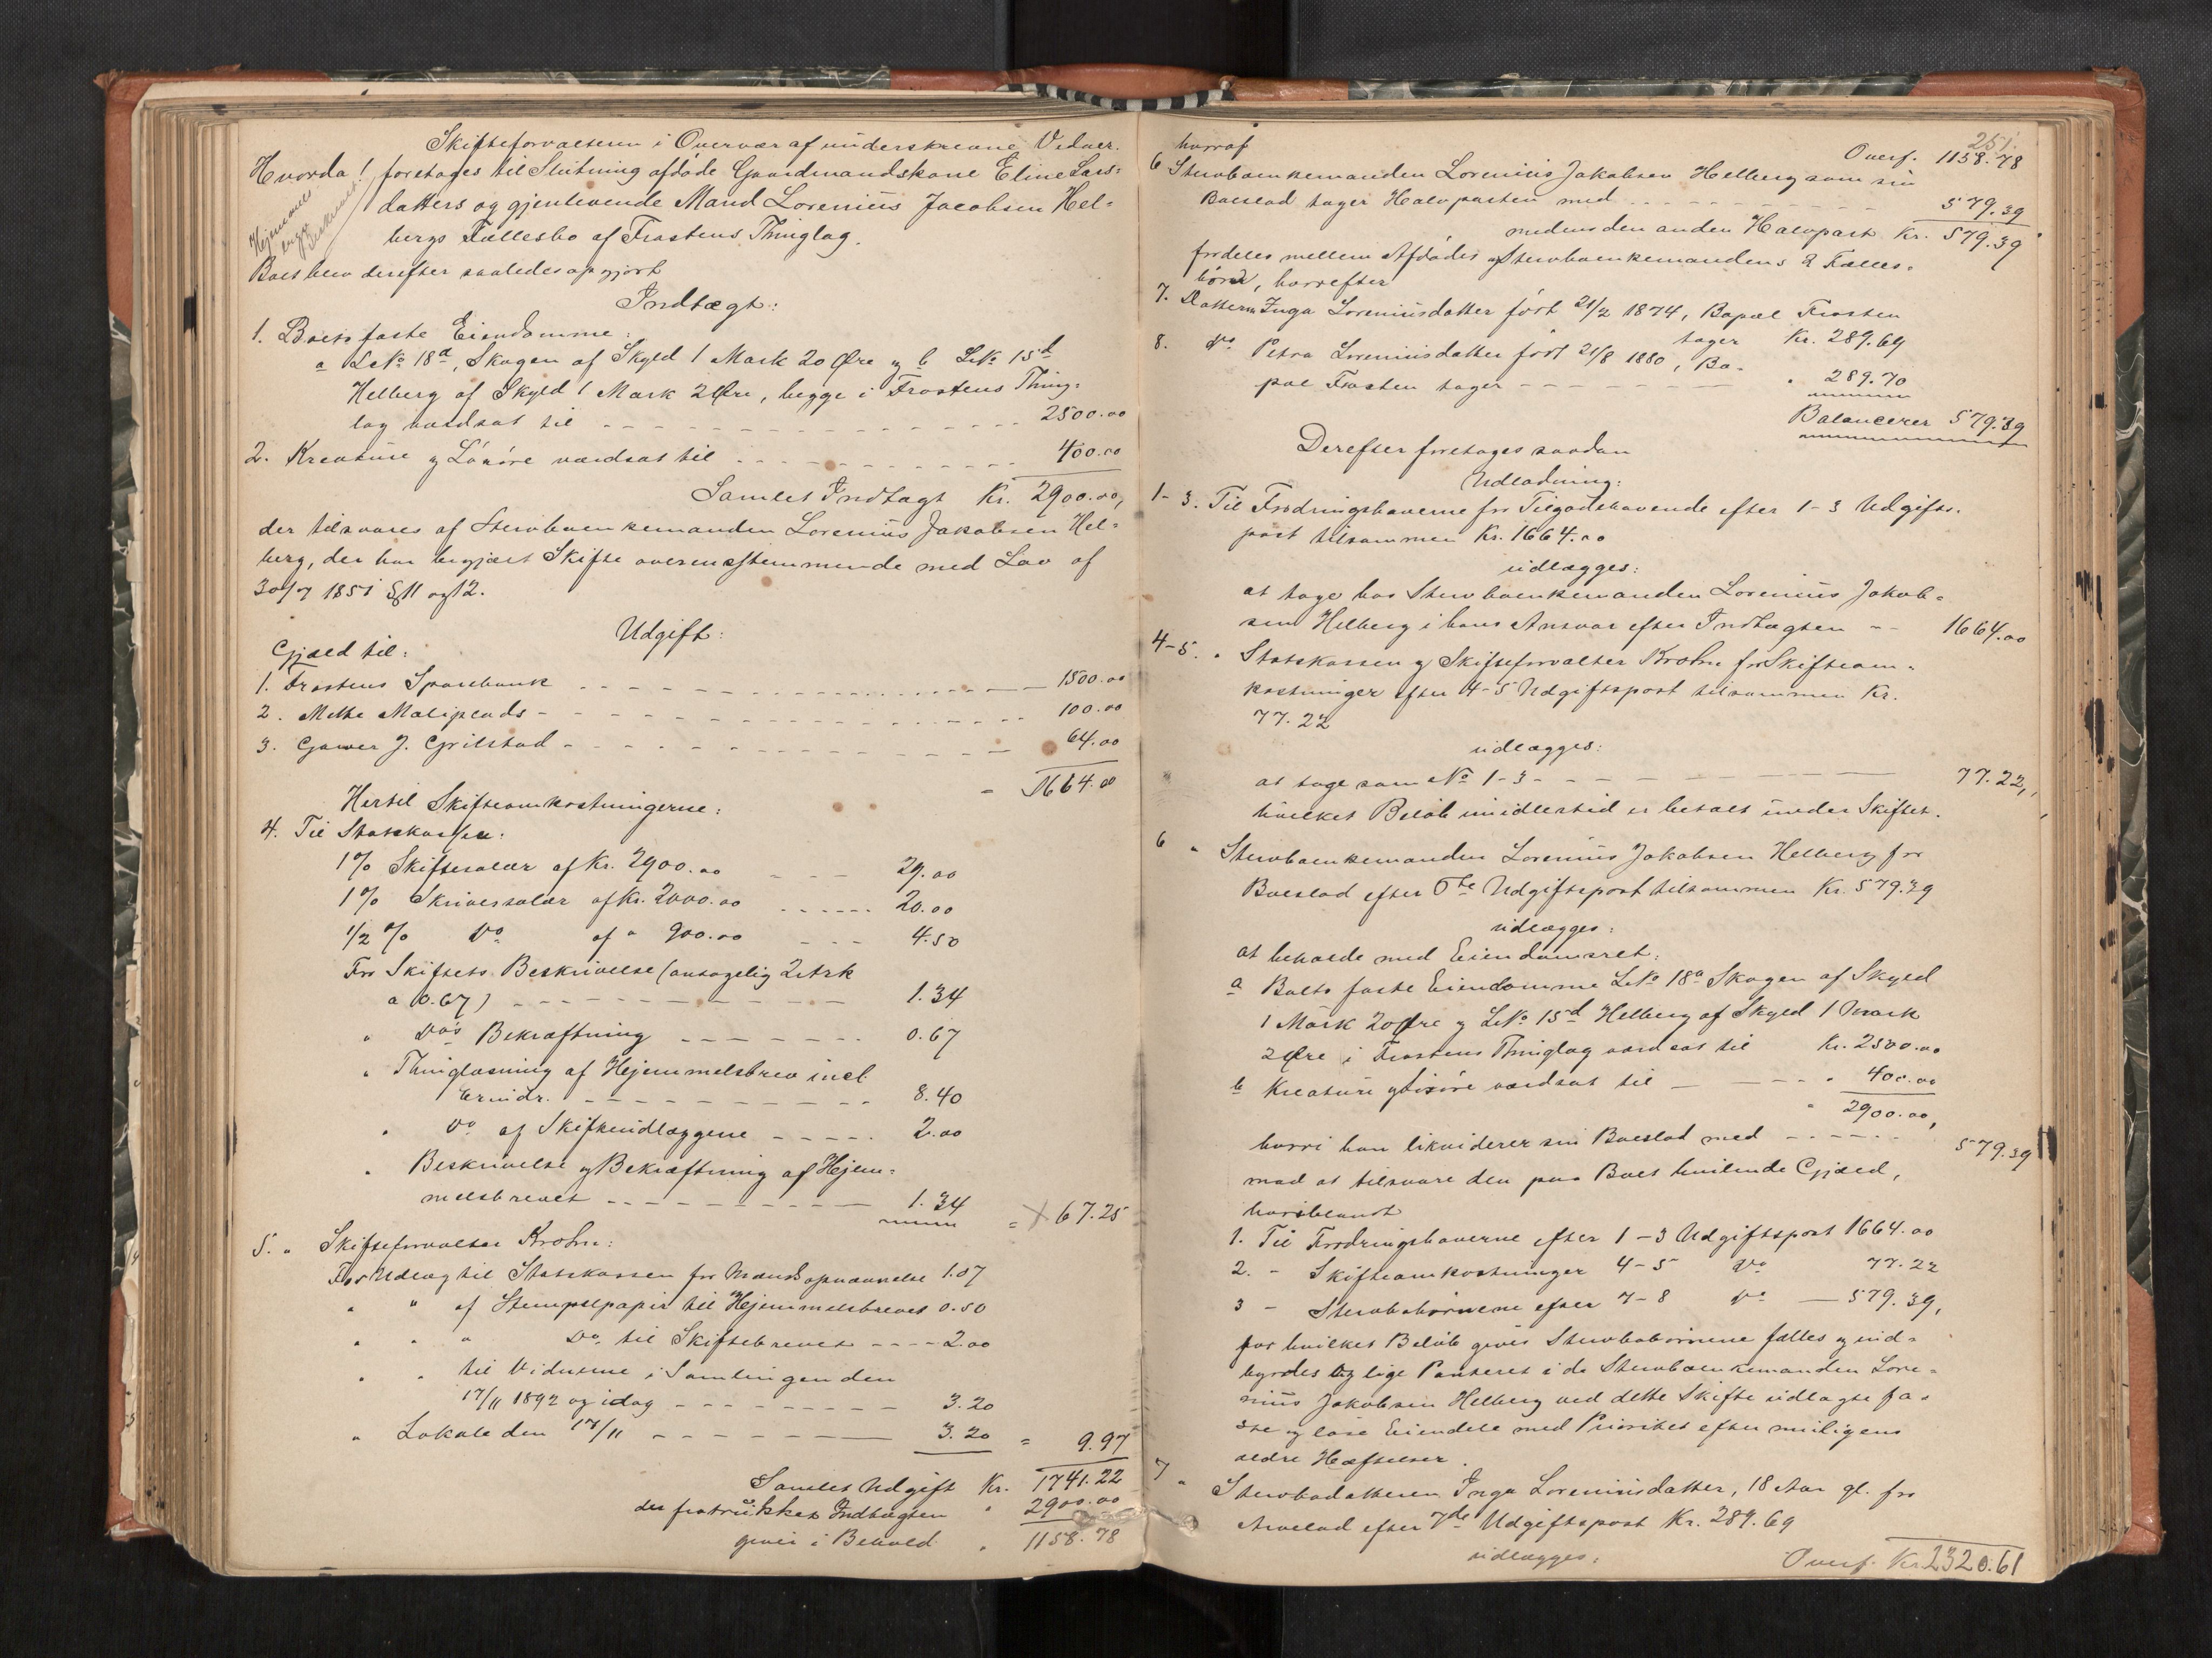 Skifteforvalteren i Overvær af underskrevne Vidner.
Hvorda! foretages til Slutning afdøde Gaardmandskone Eline Lars-
Hjemmels
datters og gjenlevende Mand Lorenius Jacobsen Hel-
bergs Fællesbo af Frostens Thinglag.
Boet blev derefter saaledes opgjort
Indtægt:
1. Boets faste Eiendomme:
a LNo 18a, Skogen af Skyld 1 Mark 20 Øre og b LNo 15d
Helberg af Skyld 1 Mark 2 Øre, begge i Frostens Thing-
lag værdsat til 2500.00
2. Kreature og Løsøre værdsat til 400.00
Samlet Indtægt Kr. 2900.00,
der tilsvares af Stervboenkemanden Lorenius Jakobsen Hel-
berg, der har begjært Skifte overensstemmende med Lov af
30/7 1851 §§11 og 12.
Udgift:
Gjæld til:
1. Frostens Sparebank 1500.00
2. Mette Maliplads 100.00
3. J. Grilstad 64.00
- 1664.00
Hertil Skifteomkostningerne:
4. Til Statskassen:
1% Skiftesalær af Kr. 2900.00 29.00
1% Skriversalær af Kr. 2000.00 20.00
1/2 % Do af " 900.00 4.50
For Skiftets Beskrivelse (antagelig 2 Ark
a 0.67) 1.34
" Do's Bekræftning 0.67
" Thinglæsning af Hjemmelsbrev incl.
Erindr. 8.40
" Do af Skifteudlæggene 2.00
" Beskrivelse og Bekræftning af Hjem-
melsbrevet 1.34 = 67.25
5. " Skifteforvalter Krohn:
For Udlæg til Statskassen for Mændsopnævnelse 1.07
" " af Stempelpapir til Hjemmelsbrevet 0.50
" " " Do. til Skiftebrevet 2.00
" " til Vidnerne i Samlingen den
17/11 1892 og idag 3.20
" Lokale den 17/11 3.20 = 9.97
Samlet Udgift Kr. 1741.22
der fratrukket Indtægten " 2900.00
giver i Behold " 1158.78
251.
hvoraf Overf. 1158.78
6 Stervboenkemanden Lorenius Jakobsen Helberg som sin
Boeslod tager Halvparten med 579.39
medens den anden Halvpart Kr. 579.39
fordeles mellem Afdødes og Stervboenkemandens 2 Fælles-
børn, hvorefter
7. Datteren Inga Loreniusdatter født 21/2 1874, Bopæl Frosten
tager Kr. 289.69
8. Do Petra Loreniusdatter født 21/8 1880, Bo-
pæl Frosten tager " 289.70
Balancerer 579.39
Derefter foretages saadan
Udlodning:
1-3. Til Fordringshaverne for Tilgodehavende efter 1-3 Udgifts-
post tilsammen Kr. 1664.00
udlægges:
at tage hos Stervboenkemanden Lorenius Jakob-
sen Helberg i hans Ansvar efter Indtægten 1664.00
4-5. " Statskassen og Skifteforvalter Krohn for Skifteom-
kostninger efter 4-5 Udgiftspost tilsammen Kr.
77.22
udlægges:
at tage som No 1-3 77.22,
hvilket Beløb imidlertid er betalt under Skiftet.
6 " Stervboenkemanden Lorenius Jakobsen Helberg for
Boeslod efter 6te Udgiftspost tilsammen Kr. 579.39
udlægges:
at beholde med Eiendomsret:
a Boets faste Eiendomme LNo 18a Skogen af Skyld
1 Mark 20 Øre og LNo 15d Helberg af Skyld 1 Mark
2 Øre i Frostens Thinglag værdsat til Kr. 2500.00
b Kreature og Løsøre værdsat til " 400.00
" 2900.00,
hvori han likviderer sin Boeslod med 579.39
mod at tilsvare den paa Boet hvilende Gjæld,
hvoriblandt
1. Til Fordringshaverne efter 1-3 Udgiftspost 1664.00
2. - Skifteomkostninger 4-5 Do 77.22
3 - Stervbobørnene efter 7-8 Do 579.39,
for hvilket Beløb gives Stervbobørnene fælles og ind-
byrdes lige Panteret i de Stervboenkemanden Lore-
nius Jakobsen Helberg ved dette Skifte udlagte fa-
ste og løse Eiendele med Prioritet efter muligens
ældre Hæftelser.
7 " Stervbodatteren Inga Loreniusdatter, 18 Aar gl. for
Arvelod efter 7de Udgiftspost Kr. 289.69
udlægges:
Overf. Kr. 2320.61